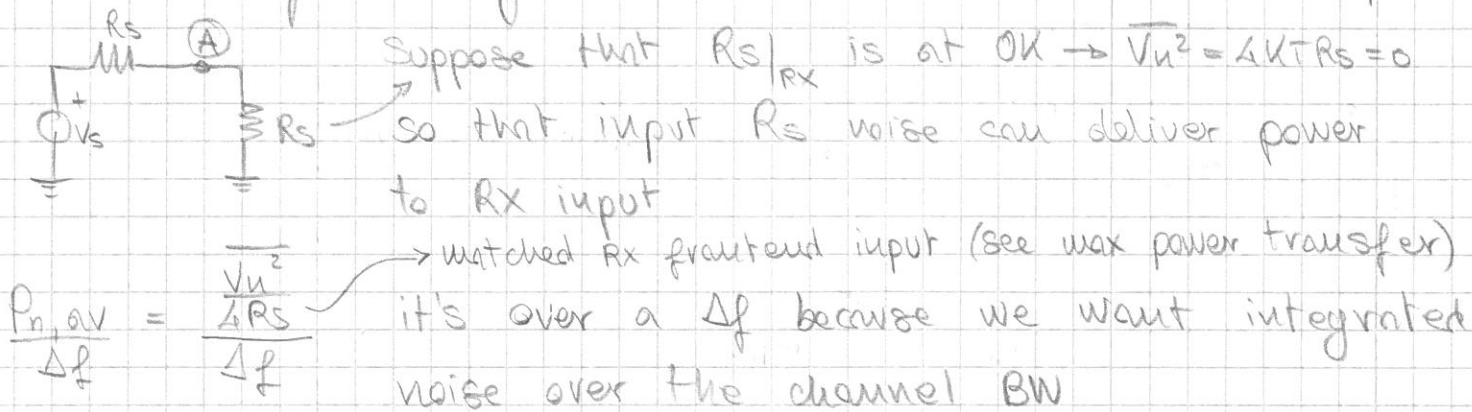 Rs
A
Suppose that Rs|RX is at 0K → Vn² = 4KTRs = 0
+
Vs
Rs
so that input Rs noise can deliver power
to RX input
→ matched RX frontend input (see max power transfer)
Pn,av / Δf = Vn² / 4Rs / Δf
it's over a Δf because we want integrated
noise over the channel BW